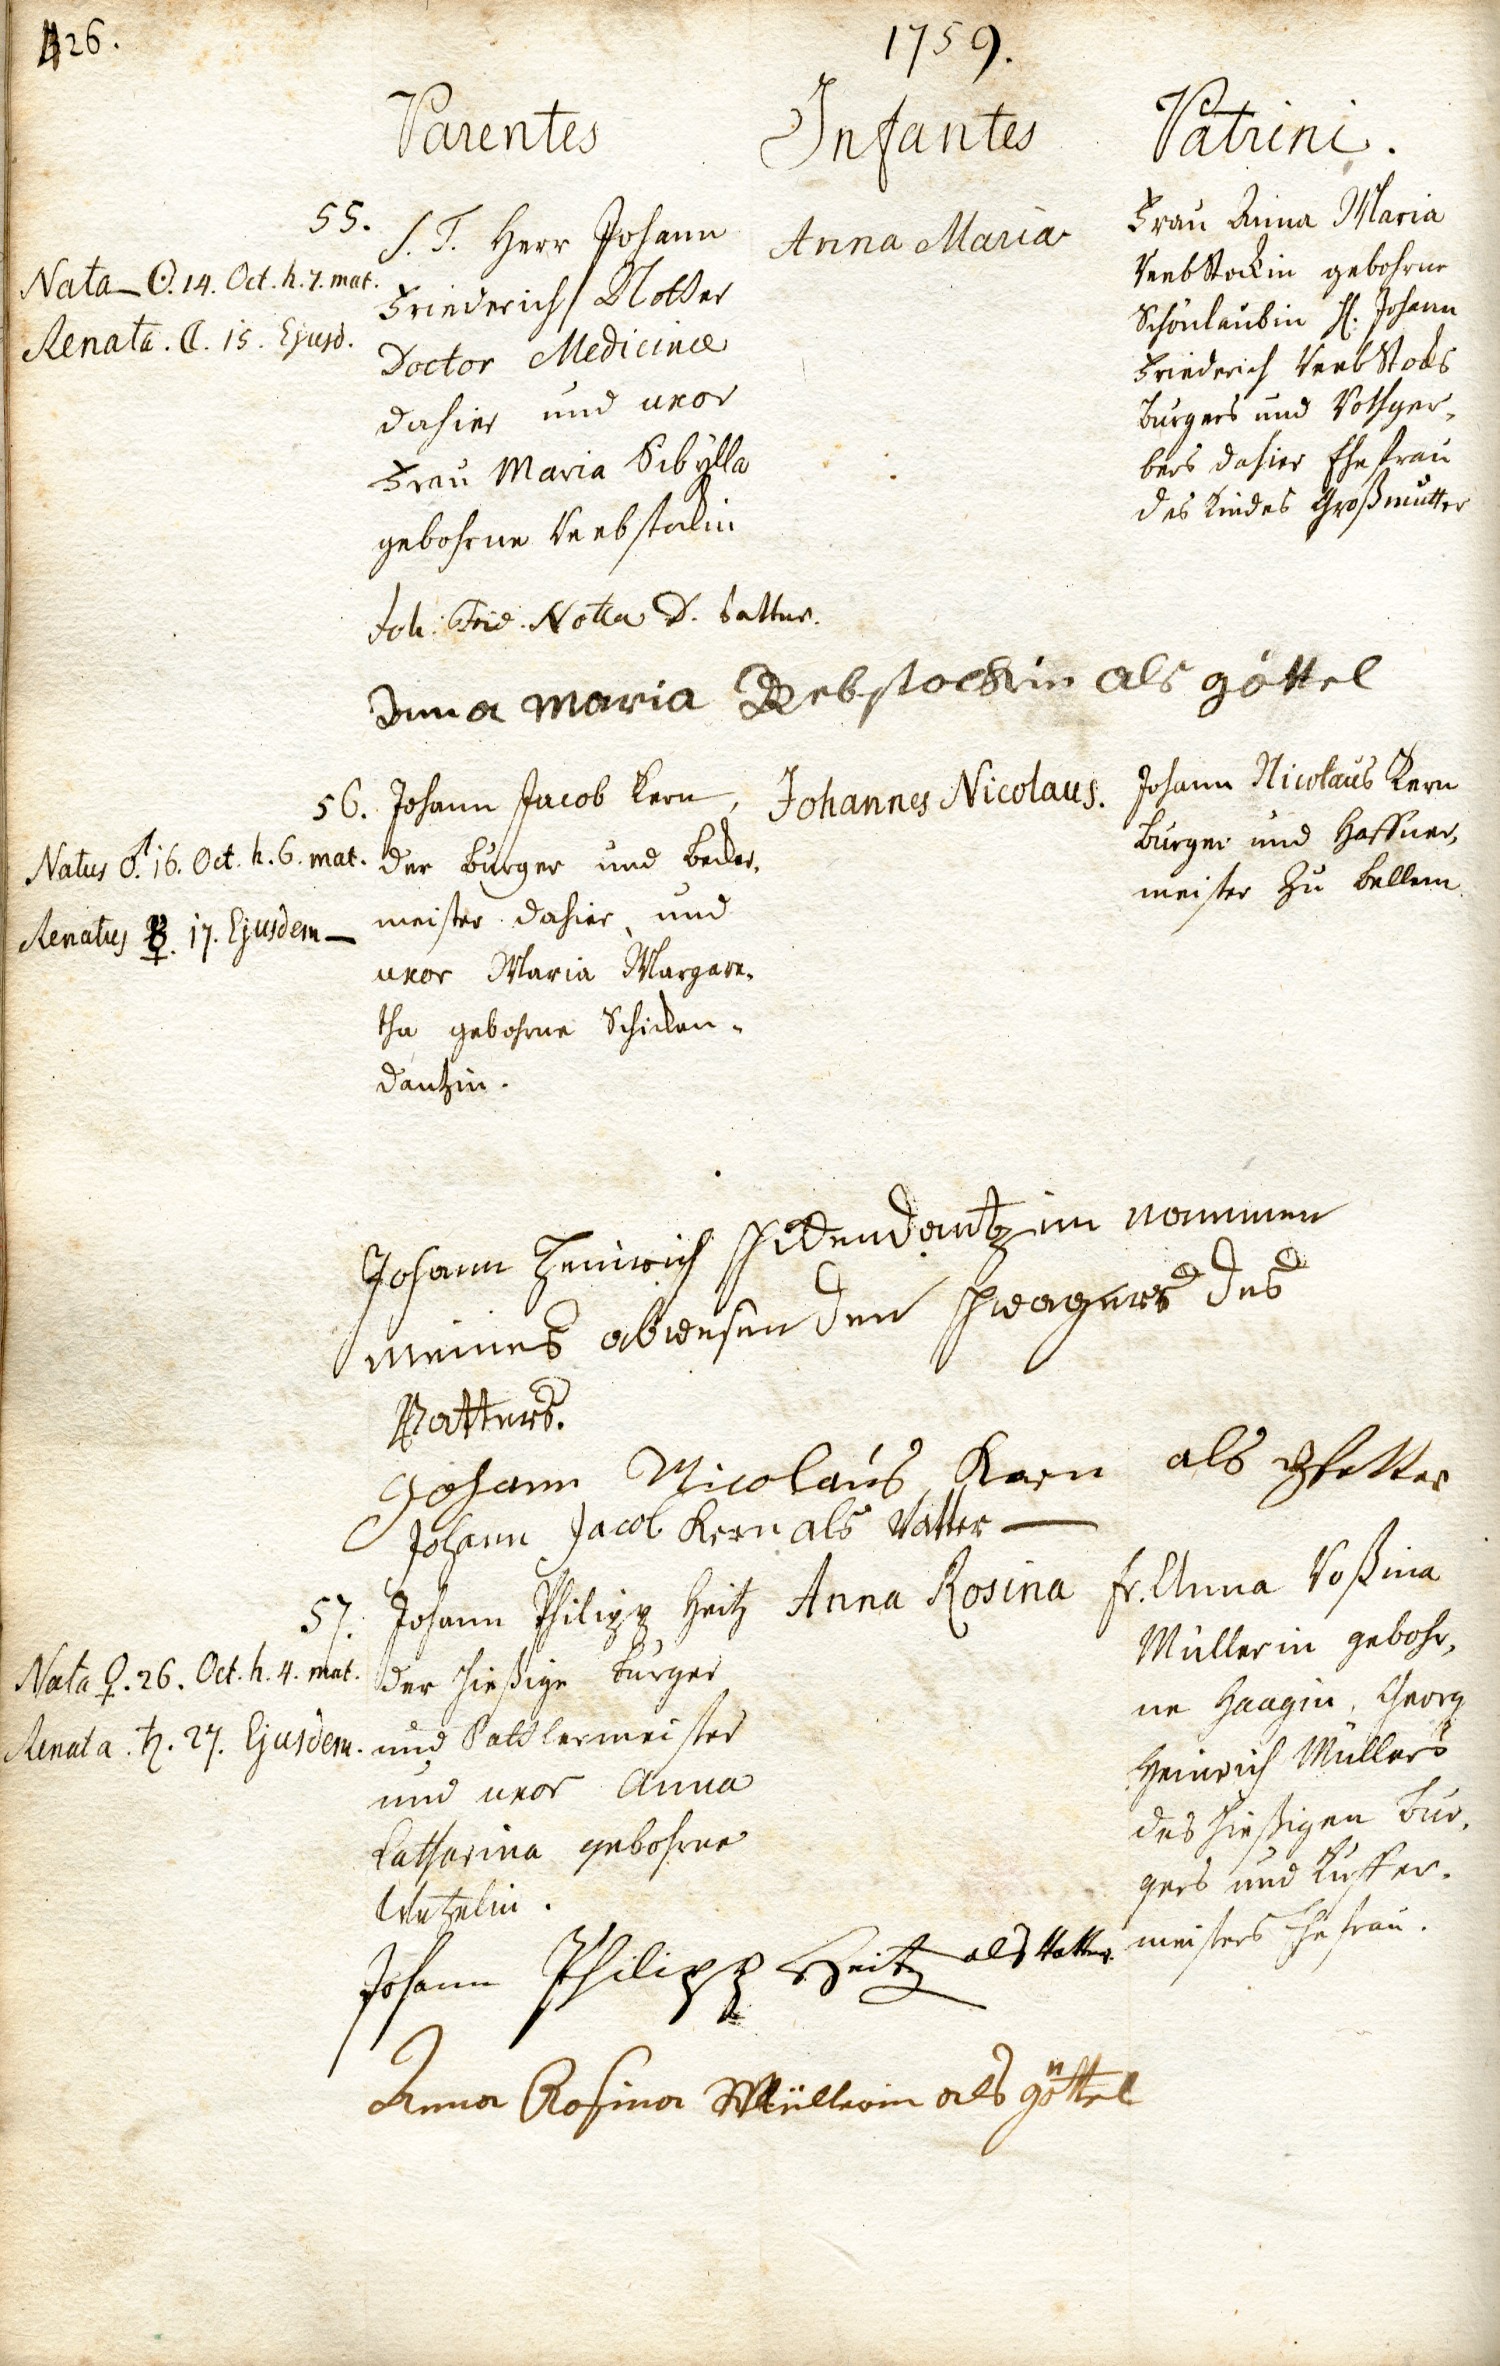 426.
1759.
Parentes Infantes Patrini.
55.
Nata ☉. 14. Oct. h. 7. mat.
Renata. ☾. 15. Ejusd.
S. T. Herr Johann
Friederich Notter
Doctor Medicinæ
dahier und uxor
Frau Maria Sibÿlla
gebohrne Rebstockin
Anna Maria
Frau Anna Maria
Rebstockin gebohrne
Schönlaubin H. Johann
Friederich Rebstocks
burgers und Rothger-
bers dahier Ehefrau
des Kindes Großmutter
Joh: Frid. Notter D. Vatter.
Anna Maria Rebstockin als göttel
56.
Natus ♂. 16. Oct. h. 6. mat.
Renatus ☿. 17. Ejusdem
Johann Jacob Kern,
der burger und becker-
meister dahier, und
uxor Maria Margare-
tha gebohrne Schicken-
dantzin.
Johannes Nicolaus.
Johann Nicolaus Kern
burger und Haffner-
meister zu bellem
Johann Heinrich Schickendantz im nammen
meines abwesenden schwagers des
Vatters.
Johann Nicolaus Kern als Pfetter
Johann Jacob Kern als Vatter
57.
Nata ♀. 26. Oct. h. 4. mat.
Renata. ♄. 27. Ejusdem.
Johann Philipp Heitz
der hießige burger
und Sattlermeister
und uxor Anna
Catharina gebohrne
Wetzelin.
Anna Rosina
fr. Anna Roßina
Müllerin gebohr-
ne Haagin, Georg
Heinrich Müllers
des hießigen bur-
gers und Kuffer-
meisters Ehefrau.
Johann Philipp Heitz als Vatter
Anna Rosina Müllerin als göttel